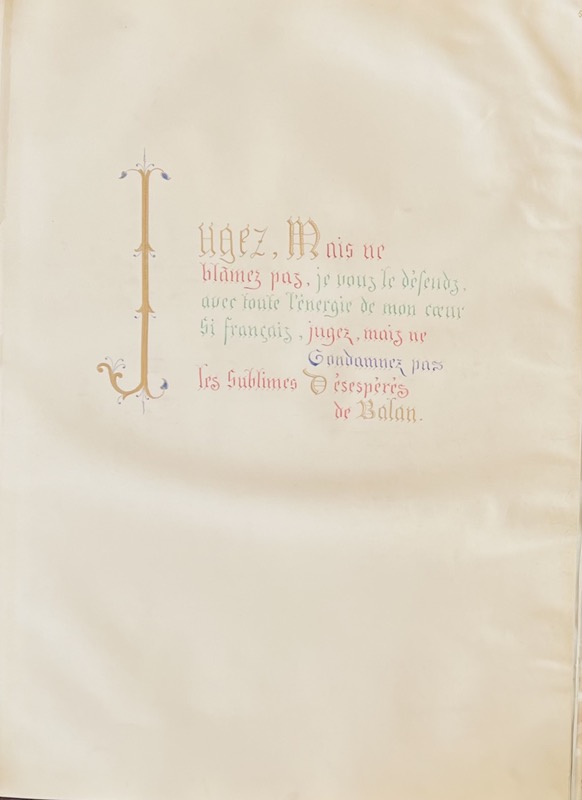 Jugez, Mais ne
blâmez pas, je vous le défends,
avec toute l'énergie de mon cœur
Si français, jugez, mais ne
Condamnez pas
les Sublimes Désespérés
de Balan.